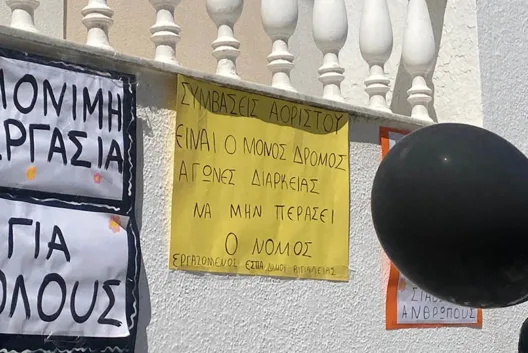 ΜΟΝΙΜΗ
ΕΡΓΑΣΙΑ
ΓΙΑ
ΟΛΟΥΣ
ΣΥΜΒΑΣΕΙΣ ΑΟΡΙΣΤΟΥ
ΕΙΝΑΙ Ο ΜΟΝΟΣ ΔΡΟΜΟΣ
ΑΓΩΝΕΣ ΔΙΑΡΚΕΙΑΣ
ΝΑ ΜΗΝ ΠΕΡΑΣΕΙ
Ο ΝΟΜΟΣ
ΕΡΓΑΖΟΜΕΝΟΣ ΕΣΠΑ ΔΗΜΟΥ
ΑΝΘΡΩΠΟΥΣ